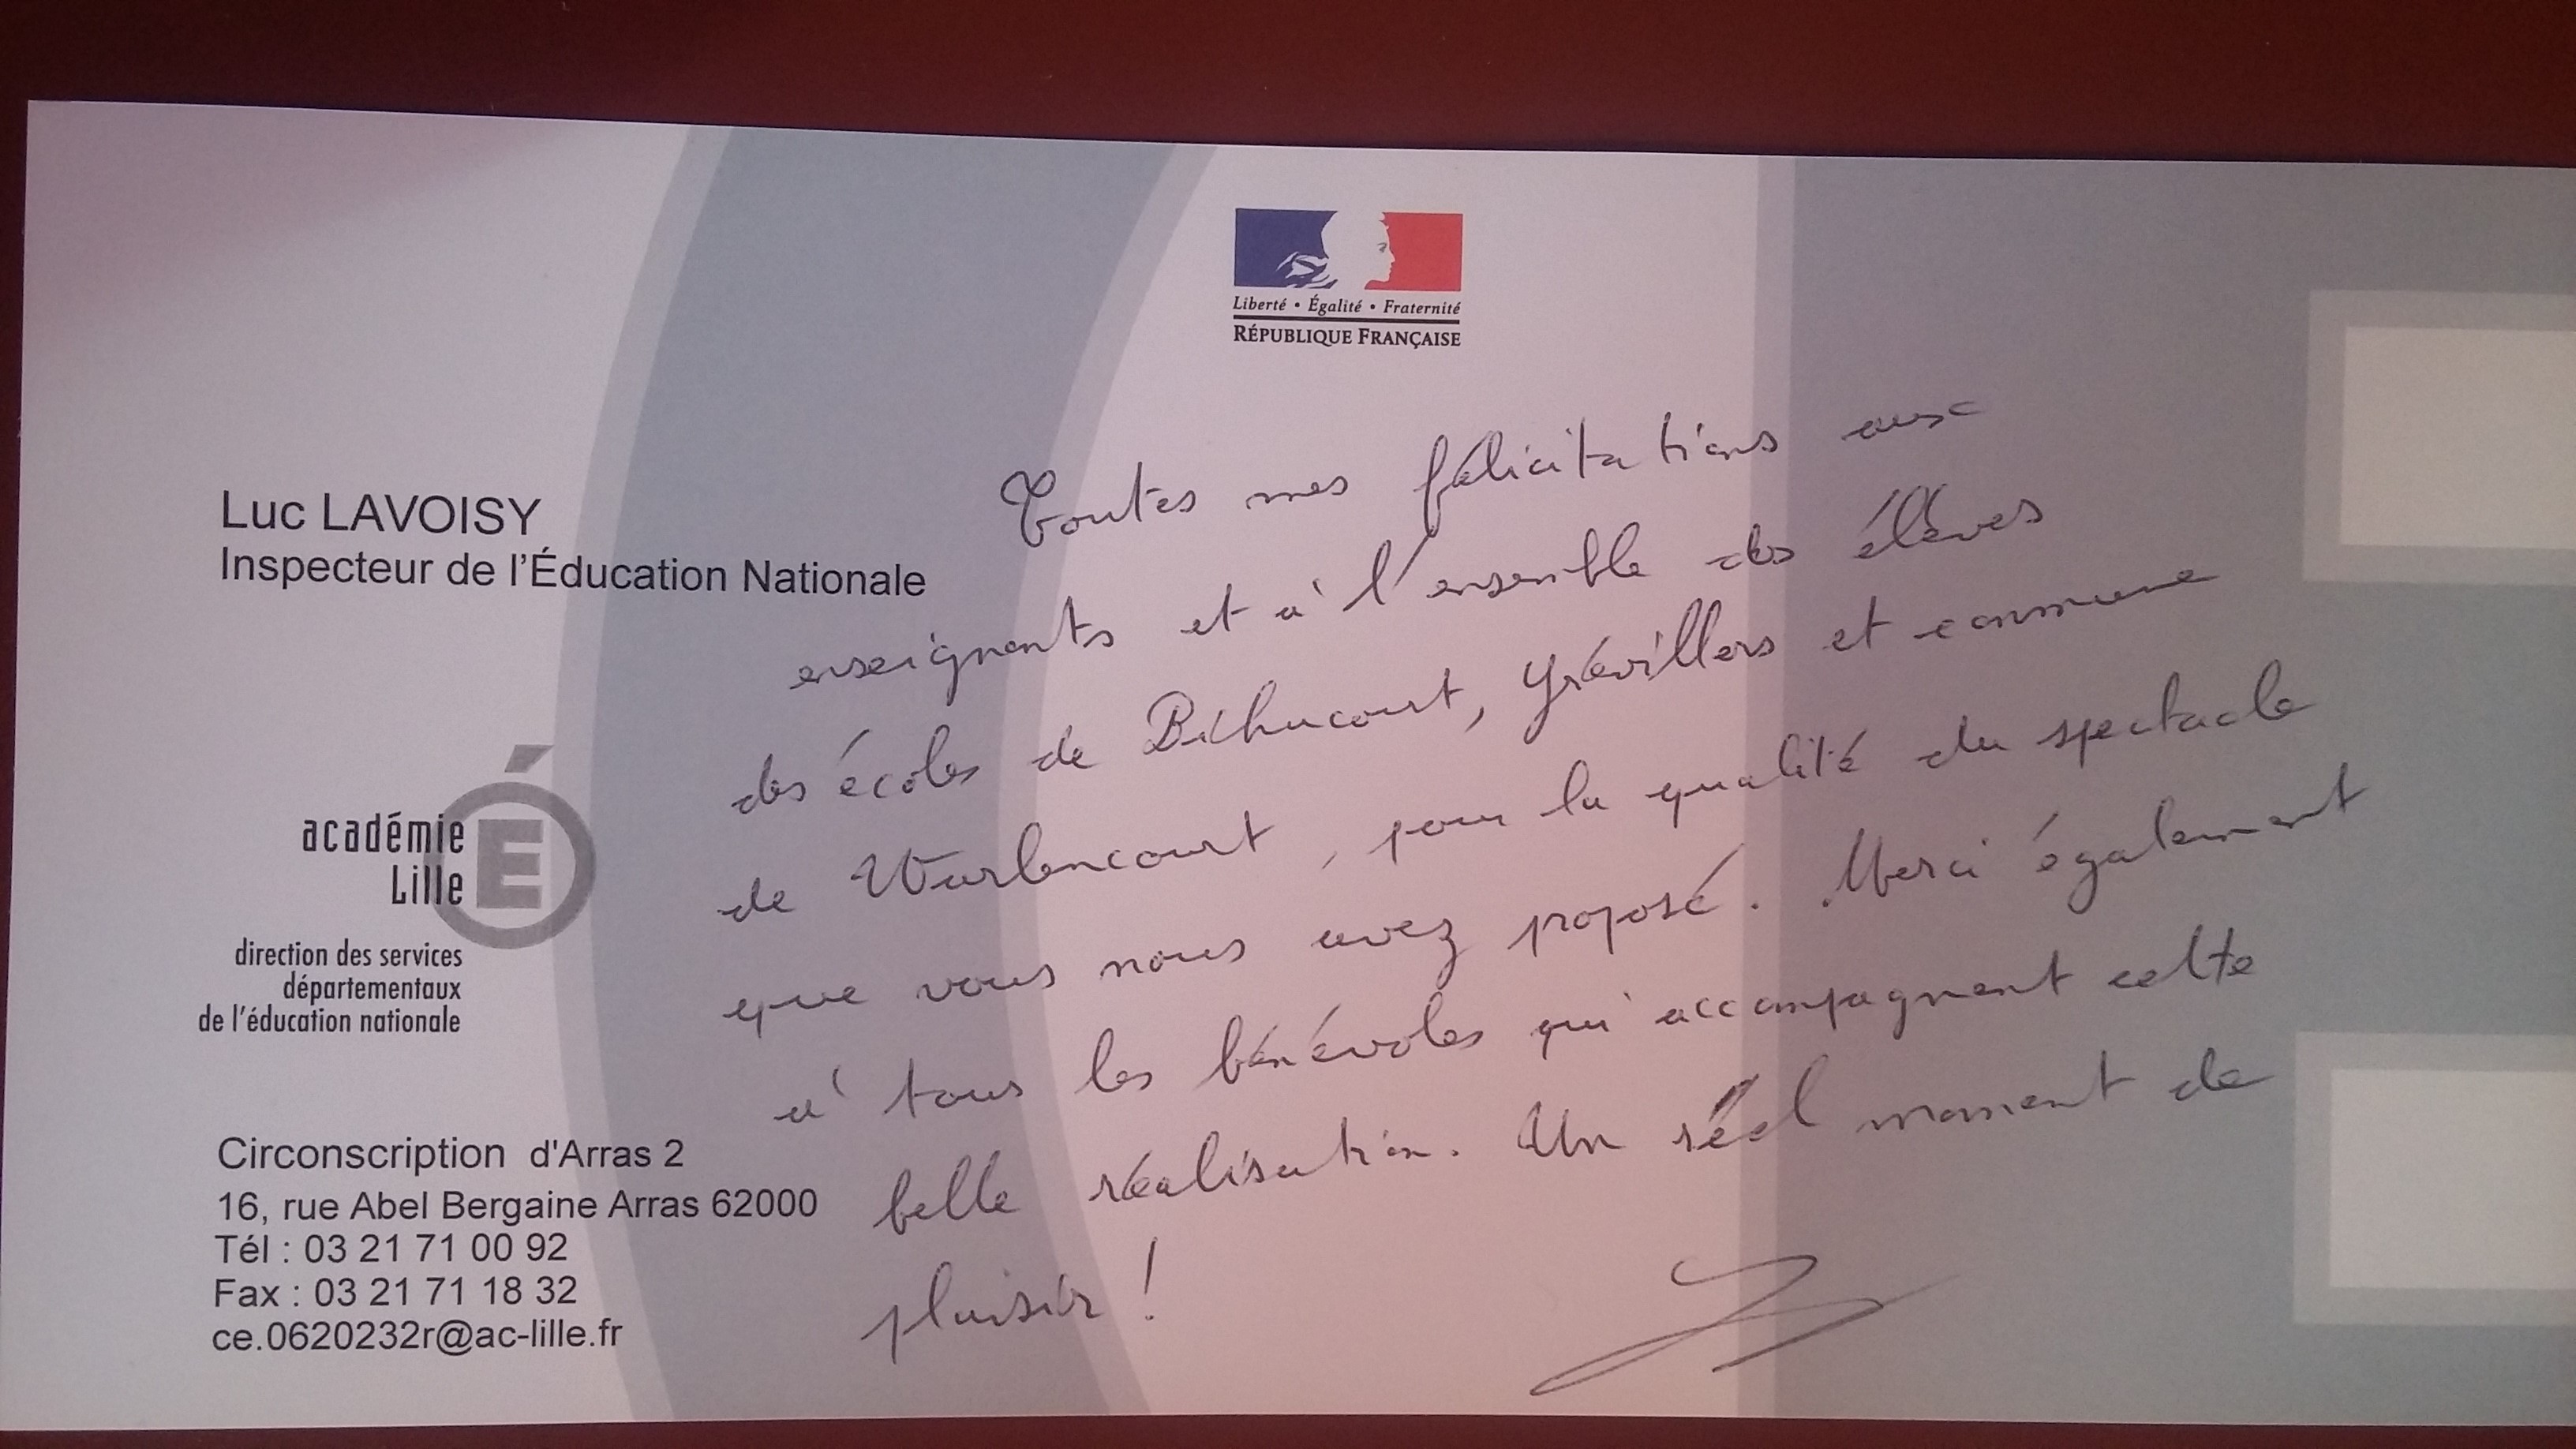 Liberté • Égalité • Fraternité
RÉPUBLIQUE FRANÇAISE
Luc LAVOISY
Inspecteur de l'Éducation Nationale
académie
Lille
É
direction des services
départementaux
de l'éducation nationale
Circonscription d'Arras 2
16, rue Abel Bergaine Arras 62000
Tél : 03 21 71 00 92
Fax : 03 21 71 18 32
ce.0620232r@ac-lille.fr
Toutes mes félicitations aux
enseignants et à l'ensemble des élèves
des écoles de Bihucourt, Grévillers et commune
de Warlencourt, pour la qualité du spectacle
que vous nous avez proposé. Merci également
à tous les bénévoles qui accompagnent cette
belle réalisation. Un réel moment de
plaisir !